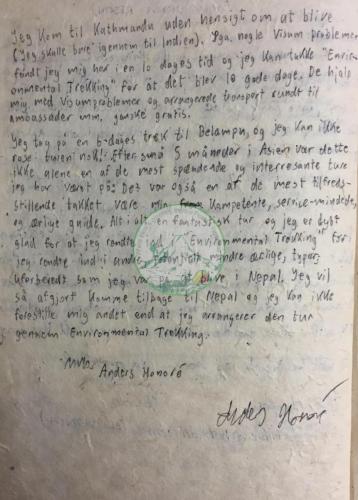 Jeg kom til Kathmandu uden hensigt om at blive
(Jeg skulle bare igennem til Indien). Pga. nogle Visum problemer
fandt jeg mig her i en 10 dages tid og jeg kan takke "Envir-
onmental Trekking" for at det blev 10 gode dage. De hjalp
mig med Visumproblemer og arrangerede transport rundt til
ambassader mm, ganske gratis.
Jeg tog på en 6-dages trek til Belampu, og jeg kan ikke
rose turen nok! Efter små 5 måneder i Asien var dette
ikke alene en af de mest spændende og interessante ture
jeg har været på; Det var også en af de mest tilfreds-
stillende takket være min kompetente, service-mindede,
og ærlige guide. Alt i alt en fantastisk tur og jeg er dybt
glad for at jeg rendte ind i "Environmental Trekking" før
jeg rendte ind i andre, potentielt mindre ærlige, typer,
uforberedt som jeg var på at blive i Nepal. Jeg vil
så afgjort komme tilbage til Nepal og jeg kan ikke
forestille mig andet end at jeg arrangerer den tur
gennem Environmental Trekking.
Mvh.
Anders Honoré
Anders Honoré